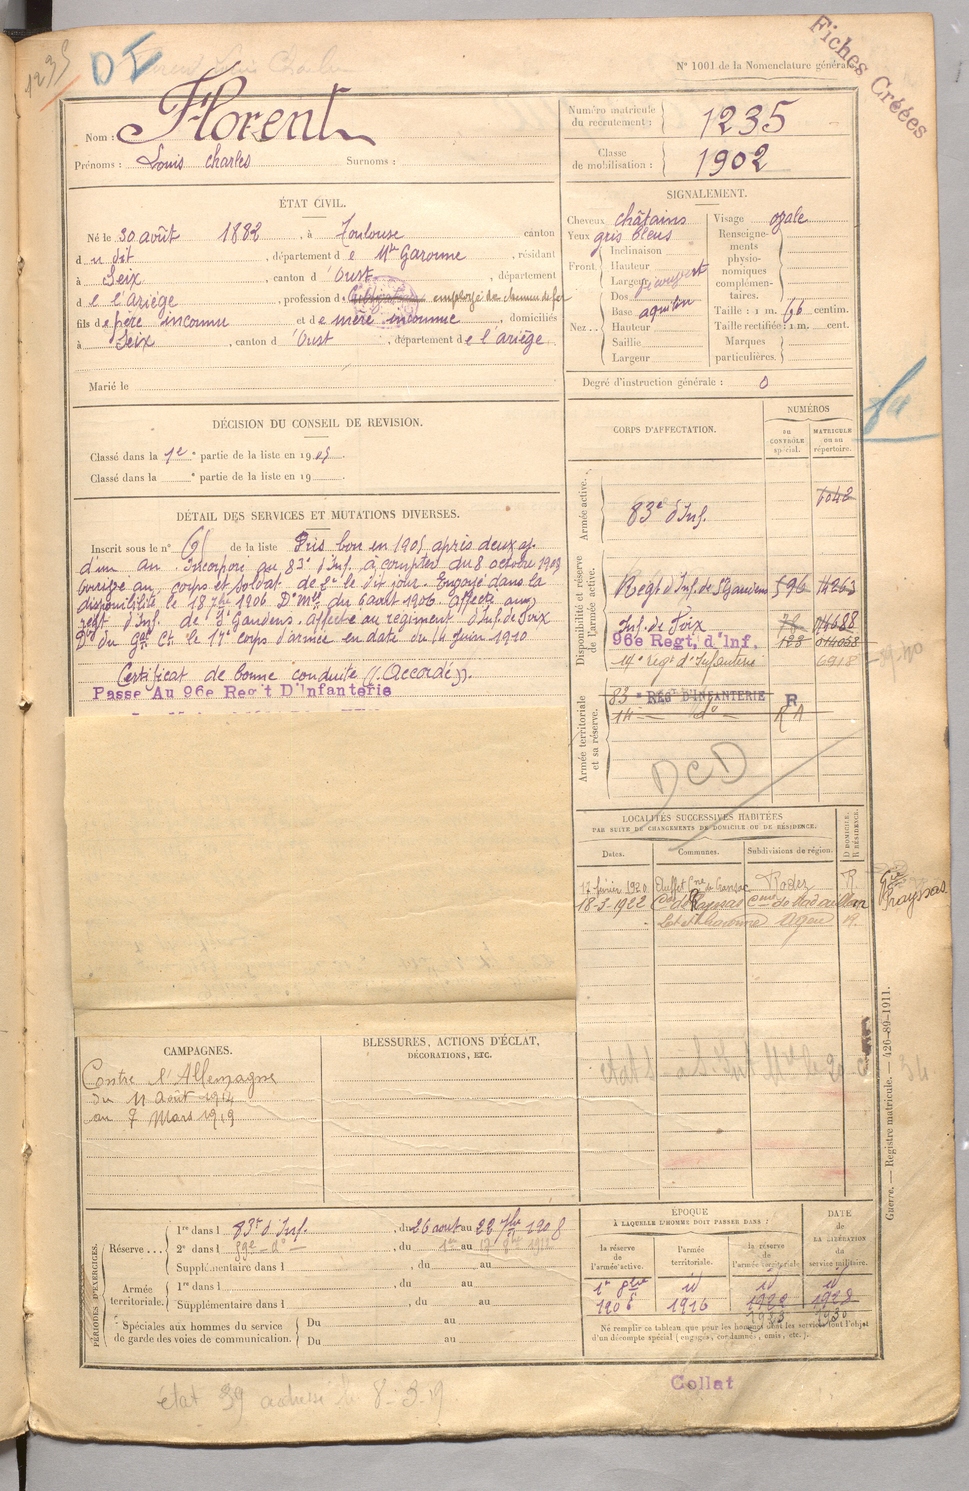 1235
Fiches Créées
N° 1001 de la Nomenclature générale
Nom : Florent
Prénoms : Louis Charles Surnoms :
Numéro matricule du recrutement : 1235
Classe de mobilisation : 1902
ÉTAT CIVIL.
Né le 30 août 1882, à Toulouse canton
d u dit, département d e Hte Garonne, résidant
à Seix, canton d 'Oust, département
d e l'Ariège, profession d employé de chemin de fer
fils d e père inconnu et d e mère inconnue, domiciliés
à Seix, canton d 'Oust, département d e l'ariège.
Marié le
SIGNALEMENT.
Cheveux châtains
Yeux gris bleus
Front.
Inclinaison
Hauteur
Largeur
Nez..
Dos
Base
aquilin
Hauteur
Saillie
Largeur
Visage ovale
Renseignements physionomiques complémentaires.
Taille : 1 m. 66 centim.
Taille rectifiée : 1 m. cent.
Marques particulières.
Degré d'instruction générale : 0
DÉCISION DU CONSEIL DE REVISION.
Classé dans la 1e partie de la liste en 1905.
Classé dans la ° partie de la liste en 19
DÉTAIL DES SERVICES ET MUTATIONS DIVERSES.
Inscrit sous le n° 65 de la liste Pris bon en 1905 après deux aj.
d'un an. Incorporé au 83e d'Inf. à compter du 8 octobre 1905
arrivé au corps et soldat de 2e le dit jour. Envoyé dans la
disponibilité le 18 7bre 1906 Don Mlle du 6 août 1906. Affecté au
régt d'Inf. de St Gaudens. affecté au régiment d'Inf. de Foix
Don du Gal Ct. le 17e corps d'armée en date du 14 Juin 1910
Certificat de bonne conduite "Accordé".
Passe Au 96e Reg't D'Infanterie
CORPS D'AFFECTATION.
NUMÉROS
au CONTRÔLE spécial.
MATRICULE ou au répertoire.
Armée active.
83e d'Inf. 7042
Disponibilité et réserve de l'armée active.
Regt d'Inf. de St Gaudens 596 74263
Inf. de Foix
96e Regt, d'Inf. 128 014058
14e regt d'Infanterie 6918
Armée territoriale et sa réserve.
83 e REGT D'INFANTERIE R
14 — do — RA
DCD
LOCALITÉS SUCCESSIVES HABITÉES
PAR SUITE DE CHANGEMENTS DE DOMICILE OU DE RÉSIDENCE.
Dates. Communes. Subdivisions de région. D DOMICILE. R RÉSIDENCE.
17 février 1920 Cne de Cransac Rodez R.
18-3-1922
Lot et Garonne Agen R.
Prayssas
CAMPAGNES.
Contre l'Allemagne
du 11 Août 1914
au 7 Mars 1919
BLESSURES, ACTIONS D'ÉCLAT,
DÉCORATIONS, ETC.
PÉRIODES D'EXERCICES.
Réserve...
1re dans l 83e d'Inf., du 26 aout au 22 7bre 1908
2e dans l 59e — do —, du 1er au 17
Supplémentaire dans l, du au
Armée territoriale.
1re dans l, du au
Supplémentaire dans l, du au
Spéciales aux hommes du service de garde des voies de communication.
Du au
Du au
ÉPOQUE
À LAQUELLE L'HOMME DOIT PASSER DANS :
la réserve de l'armée active.
l'armée territoriale.
la réserve de l'armée territoriale.
DATE de LA LIBÉRATION du service militaire.
1er 8bre id id id
1906 1916 1922 1928
Ne remplir ce tableau que pour les hommes dont les services font l'objet
d'un décompte spécial (engagés, condamnés, omis, etc.).
Guerre. — Registre matricule. — 426-89-1911.
Collat
état 39 adressé le 8-3-19